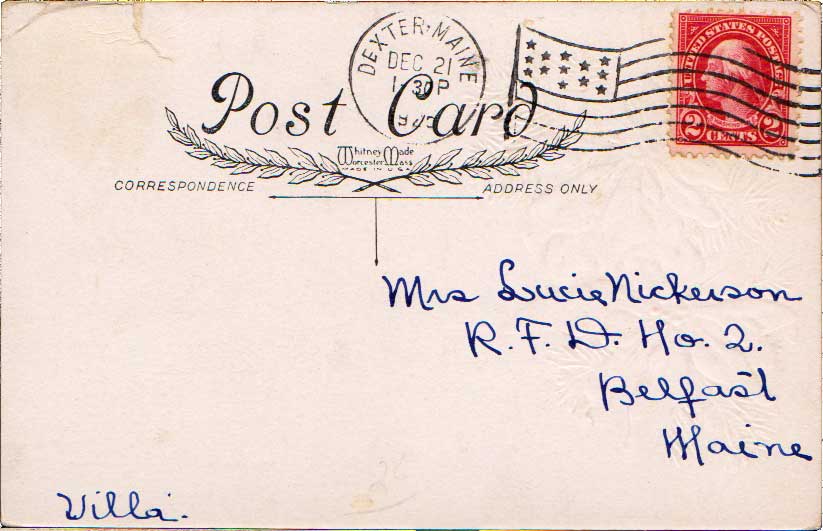 DEXTER·MAINE
DEC 21
1 30P
Post Card
Whitney Made
Worcester Mass
MADE IN U.S.A.
CORRESPONDENCE
ADDRESS ONLY
UNITED STATES POSTAGE
2 CENTS 2
Mrs Lucie Nickerson
R.F.D. No. 2.
Belfast
Maine
Villa.